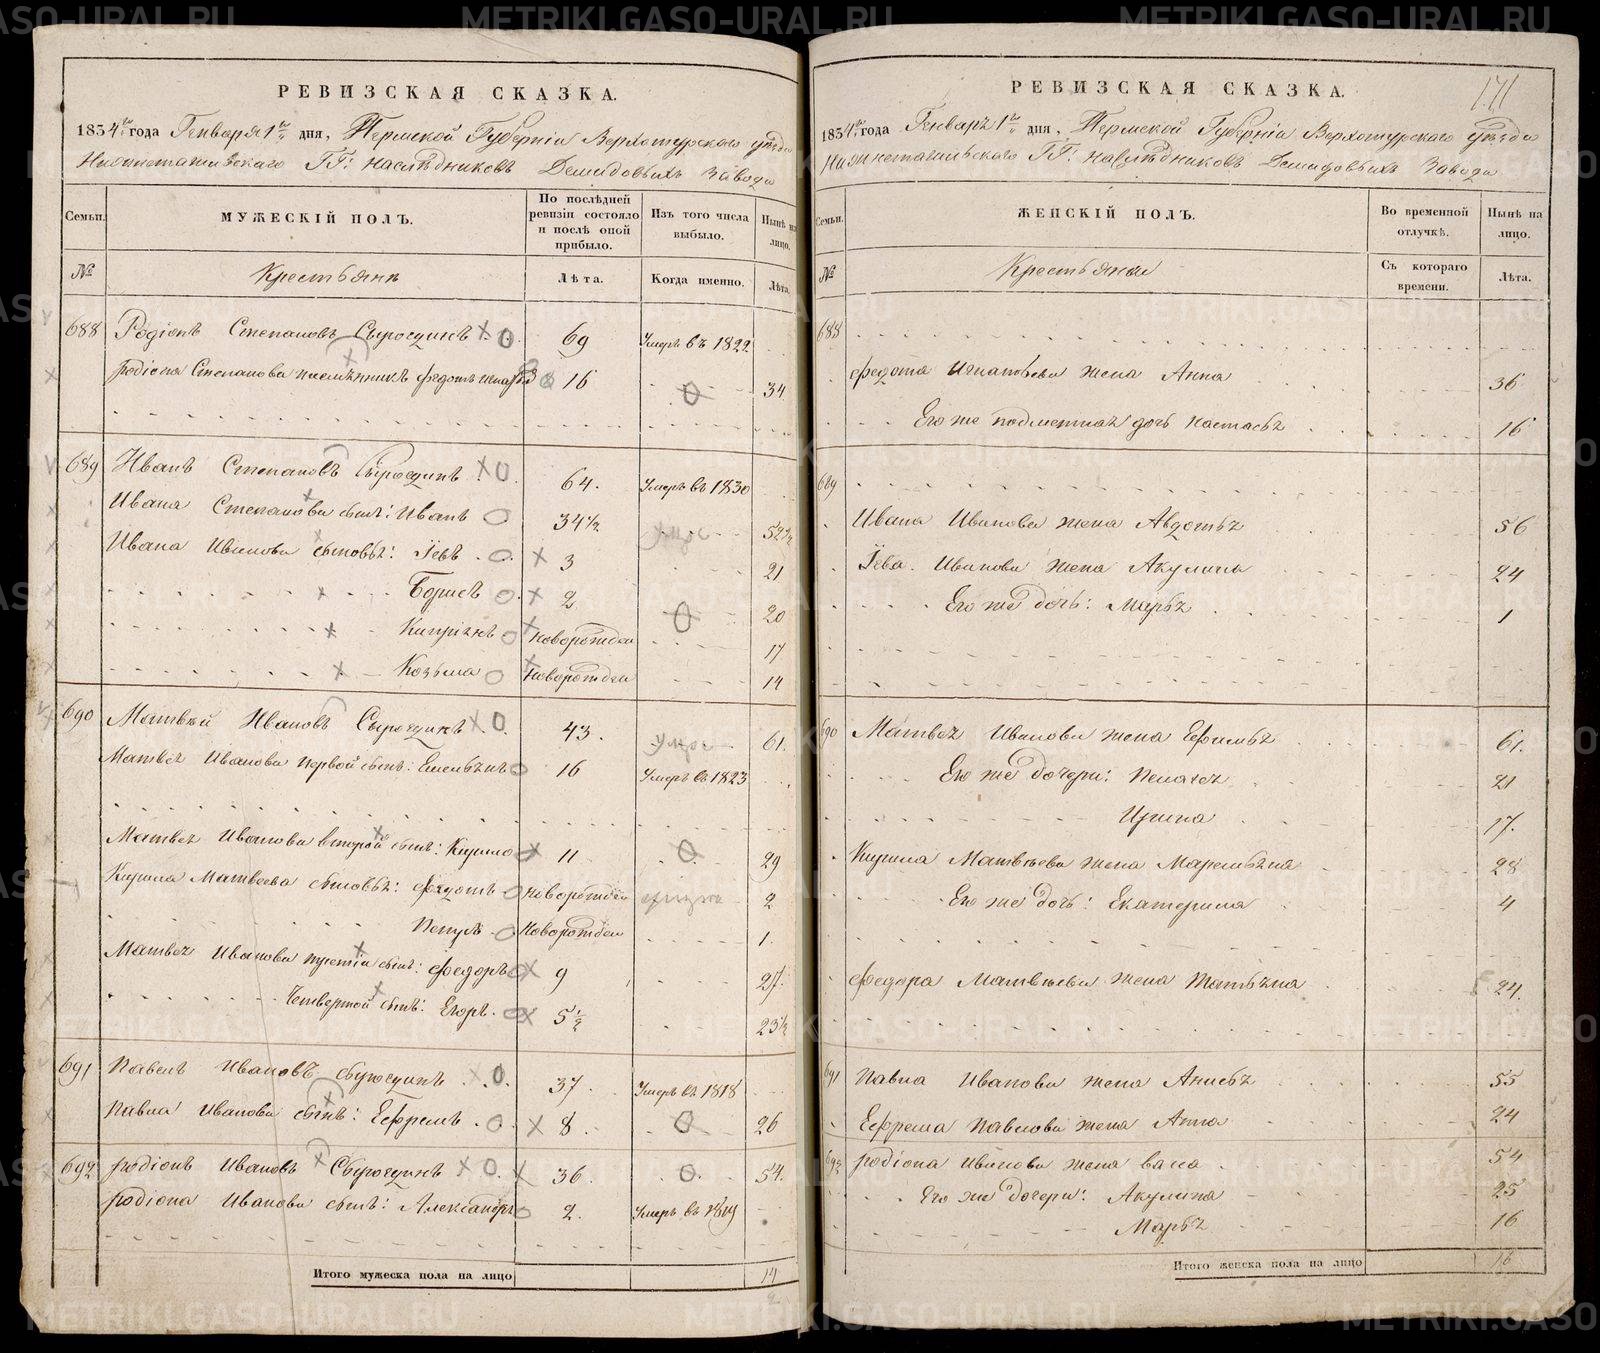 РЕВИЗСКАЯ СКАЗКА.
1834го года Генваря 1го дня, Пермской Губерніи Верхотурского уѣзда
Нижнетагильскаго ГГ: наслѣдниковъ Демидовыхъ завода
Семьи.
МУЖЕСКІЙ ПОЛЪ.
По послѣдней ревизіи состояло и послѣ оной прибыло.
Изъ того числа выбыло.
Нынѣ на лицо.
№
Крестьянъ
Лѣта.
Когда именно.
Лѣта.
688 Родіонъ Степановъ Сыросцинъ 69 Умеръ въ 1822
Родіона Степанова племянникъ Федотъ 16 34
689 Иванъ Степановъ Сыросцинъ 64. Умеръ въ 1830
Ивана Степанова сынъ: Иванъ 34½ 52½
Ивана Иванова сыновья: Іевъ 3 21
Борисъ 2 20
Кипріянъ новорожден 17
Козьма новорожден 14
690 Матвѣй Ивановъ Сыросцинъ 43. умре 61.
Матвея Иванова первой сынъ: Емельянъ 16 Умеръ въ 1823
Матвея Иванова второй сынъ: Кирило 11 29
Кирила Матвеева сыновья: Федотъ новорожден 2
новорожден 1.
Матвея Иванова третій сынъ: Федоръ 9 27
Четвертой сынъ: Егоръ 5½ 23½
691 Павелъ Ивановъ Сыросцинъ 37. Умеръ въ 1818
Павла Иванова сынъ: Ефремъ 8 26
692 Родіонъ Ивановъ Сыросцинъ 36. 54.
Родіона Иванова сынъ: Александръ 2. Умеръ въ 1819
Итого мужеска пола на лицо 14
РЕВИЗСКАЯ СКАЗКА.
171
1834го года Генваря 1го дня, Пермской Губерніи Верхотурского уѣзда
Нижнетагильскаго ГГ: наслѣдниковъ Демидовыхъ завода
Семьи.
ЖЕНСКІЙ ПОЛЪ.
Во временной отлучкѣ.
Нынѣ на лицо.
№
Крестьянки
Съ котораго времени.
Лѣта.
688
Федота Игнатьева жена Анна 36
Его же подметная дочь Настасья 16
689
Ивана Иванова жена Авдотья 56
Іева Иванова жена Акулина 24
Его же дочь: Марья 1
690 Матвея Иванова жена Ефимья 61.
Его же дочери: Пелагея 21
Ирина 17.
Кирила Матвѣева жена Маремьяна 28
Его же дочь: Екатерина 4
Федора Матвѣева жена Татьяна 24.
691 Павла Иванова жена Анисья 55
Ефрема Павлова жена Анна 24
692 Родіона Иванова жена Васа 54
Его же дочери: Акулина 25
Марья 16
Итого женска пола на лицо 16
METRIKI.GASO-URAL.RU